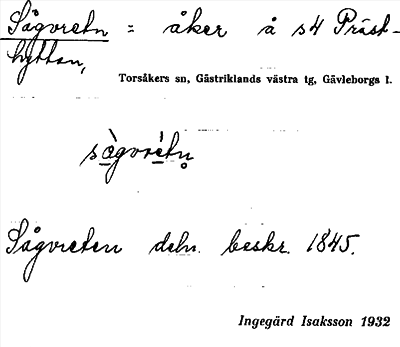 Sågvretn = åker å s4 Präst-
hyttan,
Torsåkers sn, Gästriklands västra tg, Gävleborgs l.
sågvrètn̥
Sågvreten deln. beskr. 1845.
Ingegärd Isaksson 1932